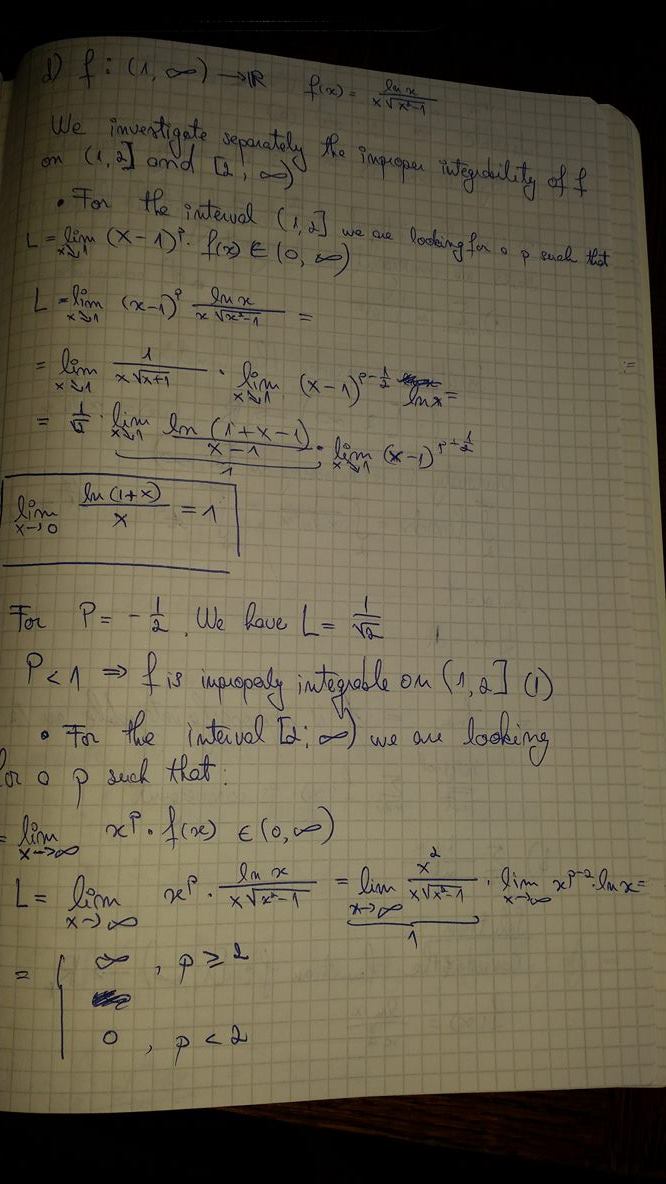 d) f : (1, ∞) → ℝ f(x) = ln x / (x√(x²-1))
We investigate separately the improper integrability of f
on (1,2] and [2, ∞)
• For the interval (1,2] we are looking for a p such that
L = lim_{x↘1} (x-1)^p · f(x) ∈ (0, ∞)
L = lim_{x↘1} (x-1)^p ln x / (x√(x²-1)) =
= lim_{x↘1} 1 / (x√(x+1)) · lim_{x↘1} (x-1)^{p-1/2} ln x =
= 1/√2 · lim_{x↘1} ln(1+x-1) / (x-1) · lim_{x↘1} (x-1)^{p+1/2}
1
lim_{x→0} ln(1+x) / x = 1
For P = -1/2. We have L = 1/√2
P < 1 ⇒ f is improperly integrable on (1,2] (1)
• For the interval [2; ∞) we are looking
for a p such that:
= lim_{x→∞} x^p · f(x) ∈ (0, ∞)
L = lim_{x→∞} x^p · ln x / (x√(x²-1)) = lim_{x→∞} x² / (x√(x²-1)) · lim_{x→∞} x^{p-2} · ln x =
1
= { ∞ , p ≥ 2
0 , p < 2